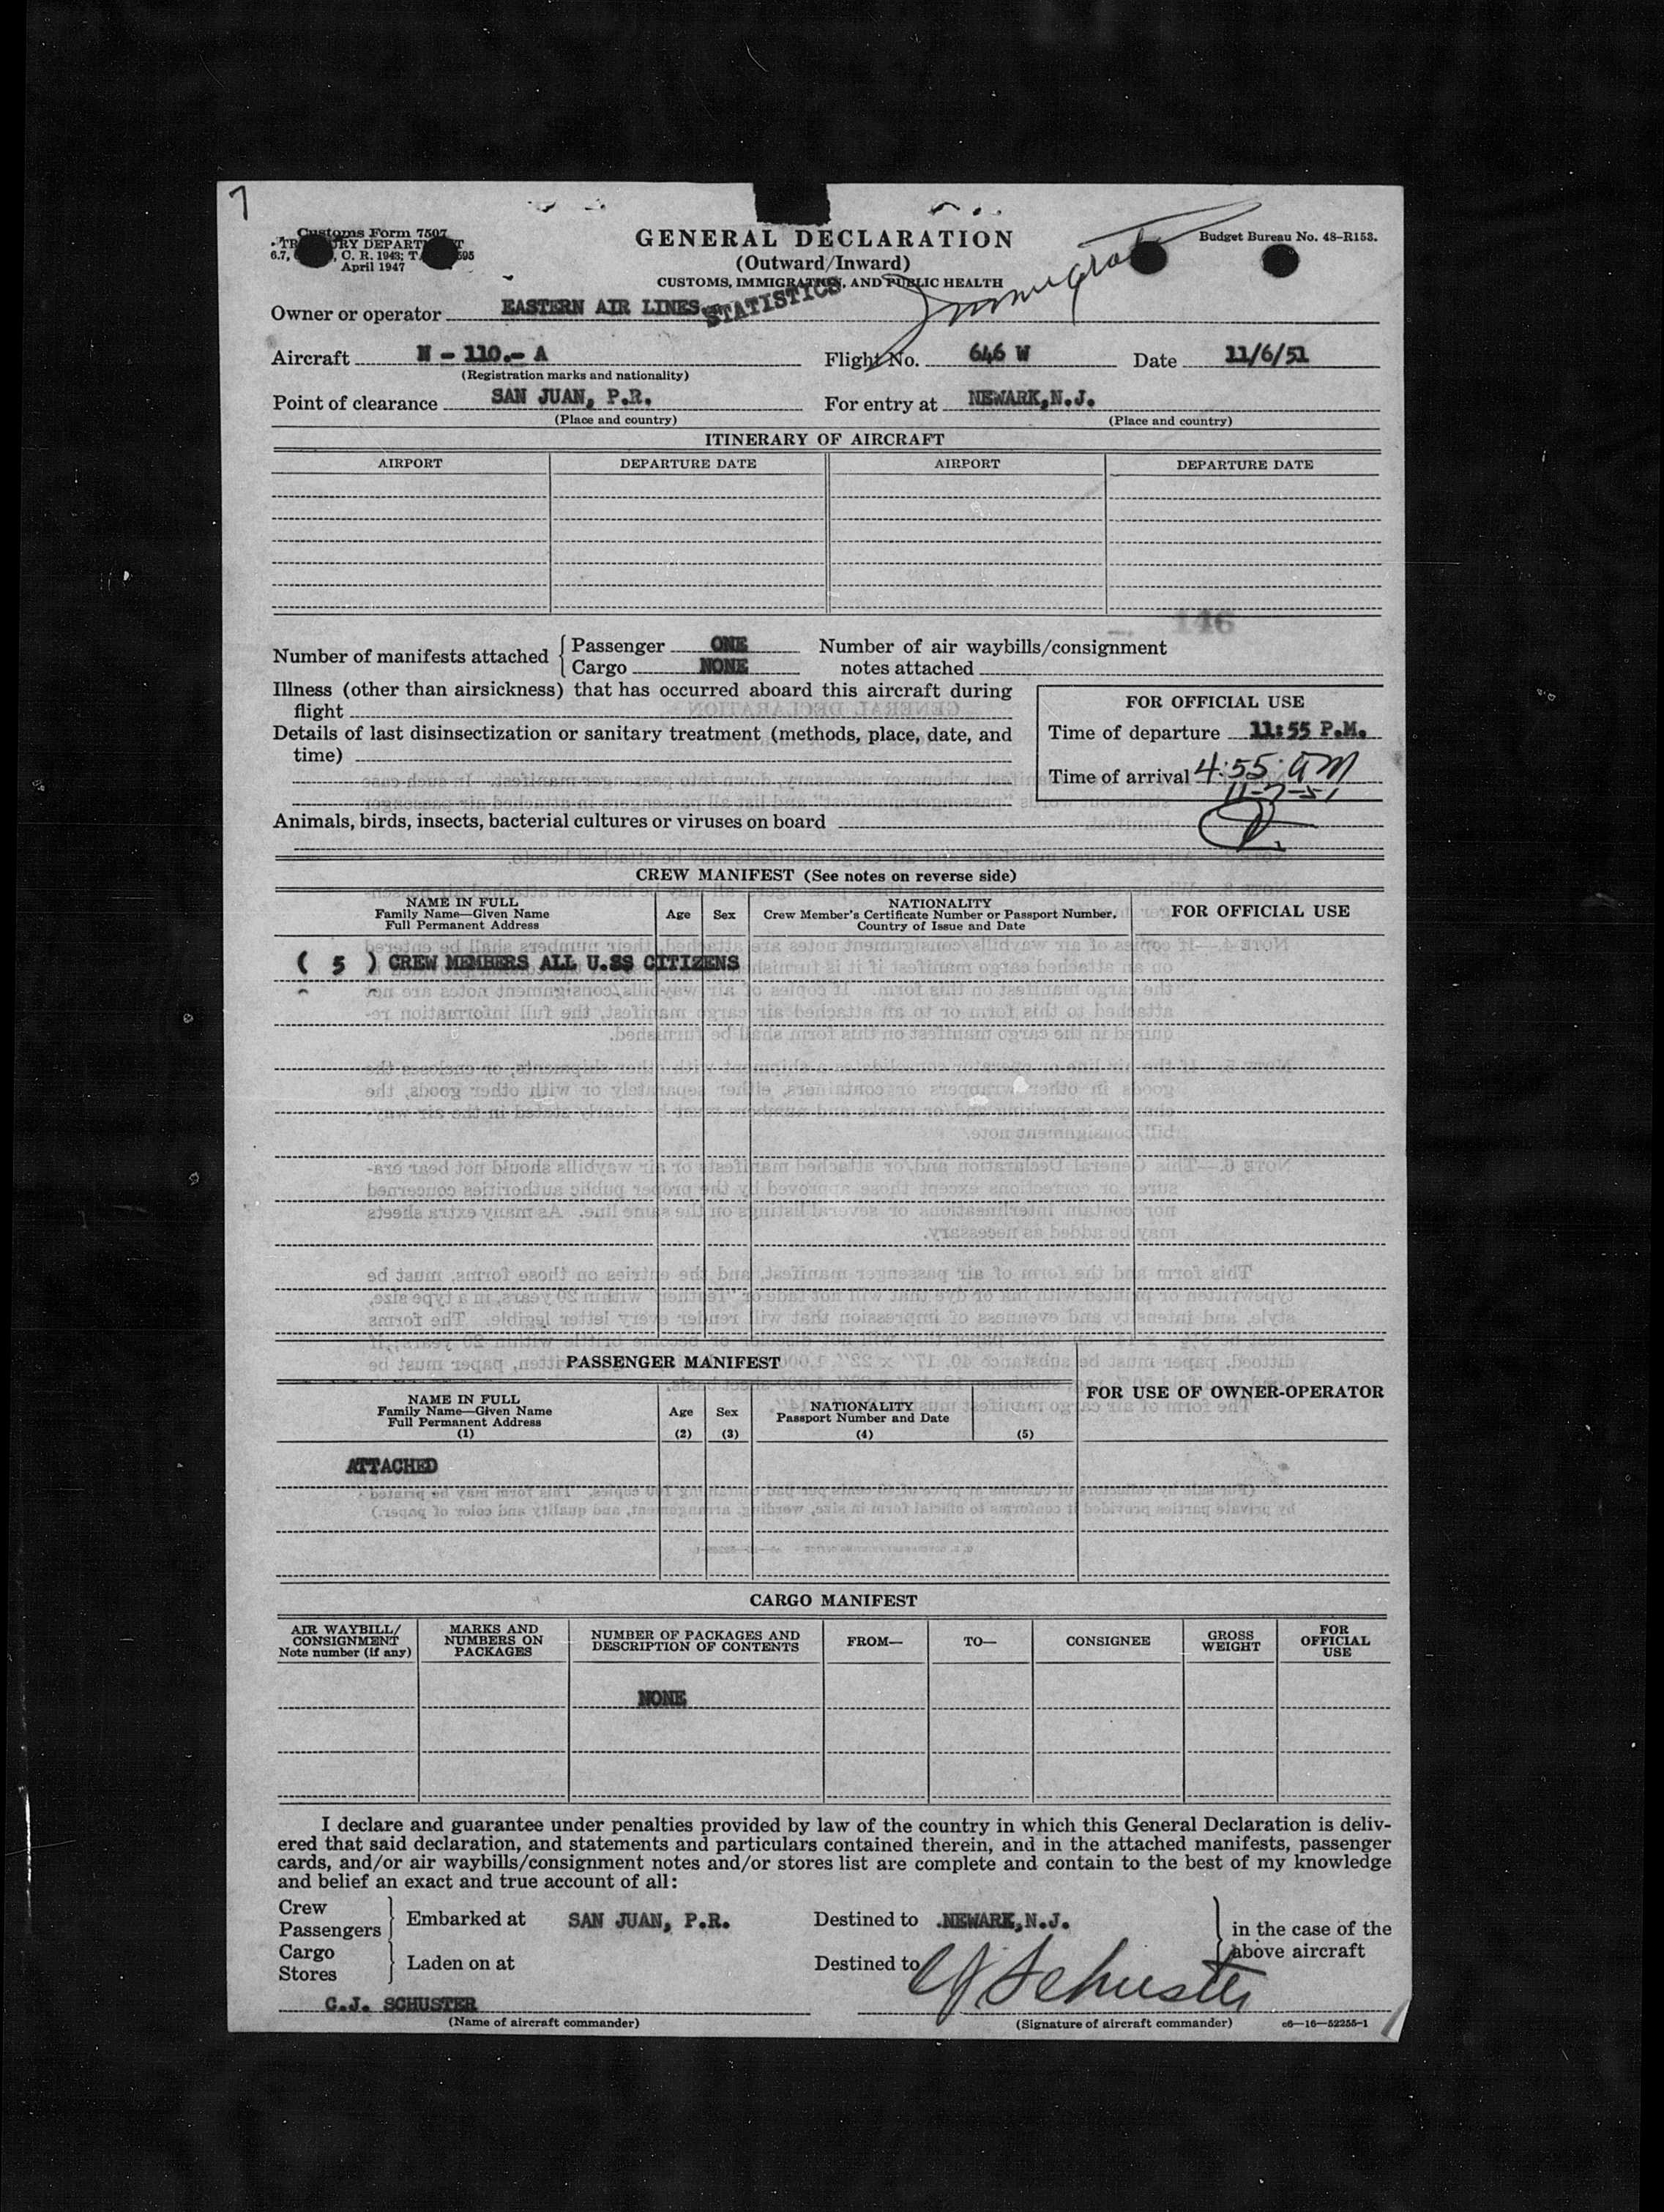 7
Customs Form 7507
TREASURY DEPARTMENT
6.7, C. R. 1943; T. 595
April 1947
GENERAL DECLARATION
(Outward/Inward)
CUSTOMS, IMMIGRATION, AND PUBLIC HEALTH
Budget Bureau No. 48-R153.
Immigration
STATISTICS
Owner or operator EASTERN AIR LINES
Aircraft N - 110.- A Flight No. 646 W Date 11/6/51
(Registration marks and nationality)
Point of clearance SAN JUAN, P.R. For entry at NEWARK,N.J.
(Place and country) (Place and country)
ITINERARY OF AIRCRAFT
AIRPORT DEPARTURE DATE AIRPORT DEPARTURE DATE
146
Number of manifests attached { Passenger ONE Number of air waybills/consignment
Cargo NONE notes attached
Illness (other than airsickness) that has occurred aboard this aircraft during
flight
Details of last disinsectization or sanitary treatment (methods, place, date, and
time)
FOR OFFICIAL USE
Time of departure 11:55 P.M.
Time of arrival 4:55 AM
11-7-51
Animals, birds, insects, bacterial cultures or viruses on board
CREW MANIFEST (See notes on reverse side)
NAME IN FULL
Family Name—Given Name
Full Permanent Address
Age
Sex
NATIONALITY
Crew Member's Certificate Number or Passport Number,
Country of Issue and Date
FOR OFFICIAL USE
( 5 ) CREW MEMBERS ALL U.SS CITIZENS
PASSENGER MANIFEST
NAME IN FULL
Family Name—Given Name
Full Permanent Address
(1)
Age
(2)
Sex
(3)
NATIONALITY
Passport Number and Date
(4) (5)
FOR USE OF OWNER-OPERATOR
ATTACHED
CARGO MANIFEST
AIR WAYBILL/
CONSIGNMENT
Note number (if any)
MARKS AND
NUMBERS ON
PACKAGES
NUMBER OF PACKAGES AND
DESCRIPTION OF CONTENTS
FROM—
TO—
CONSIGNEE
GROSS
WEIGHT
FOR
OFFICIAL
USE
NONE
I declare and guarantee under penalties provided by law of the country in which this General Declaration is deliv-
ered that said declaration, and statements and particulars contained therein, and in the attached manifests, passenger
cards, and/or air waybills/consignment notes and/or stores list are complete and contain to the best of my knowledge
and belief an exact and true account of all:
Crew
Passengers } Embarked at SAN JUAN, P.R. Destined to .NEWARK,N.J. } in the case of the
Cargo above aircraft
Stores } Laden on at Destined to
C.J. SCHUSTER CJ Schuster
(Name of aircraft commander) (Signature of aircraft commander) c6—16—52255-1